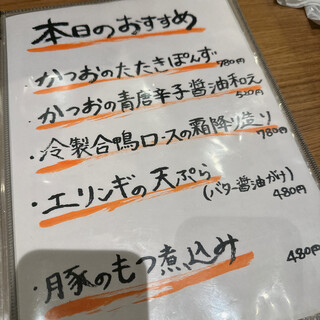 本日のおすすめ
・かつおのたたきぽんず 780円
・かつおの青唐辛子醤油和え 520円
・冷製合鴨ロースの霜降り造り 780円
・エリンギの天ぷら
(バター醤油がけ) 480円
・豚のもつ煮込み 480円